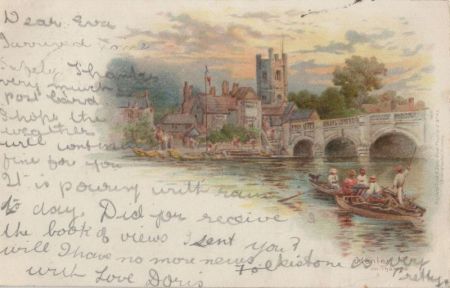 Dear Eva
I arrived home
safely Thanks
very much
post card
I hope the
weather
will continue
fine for you
It is pouring with rain
to day. Did you receive
the book of views I sent you?
will I have no more news
Folkestone is very
pretty.
with Love Doris